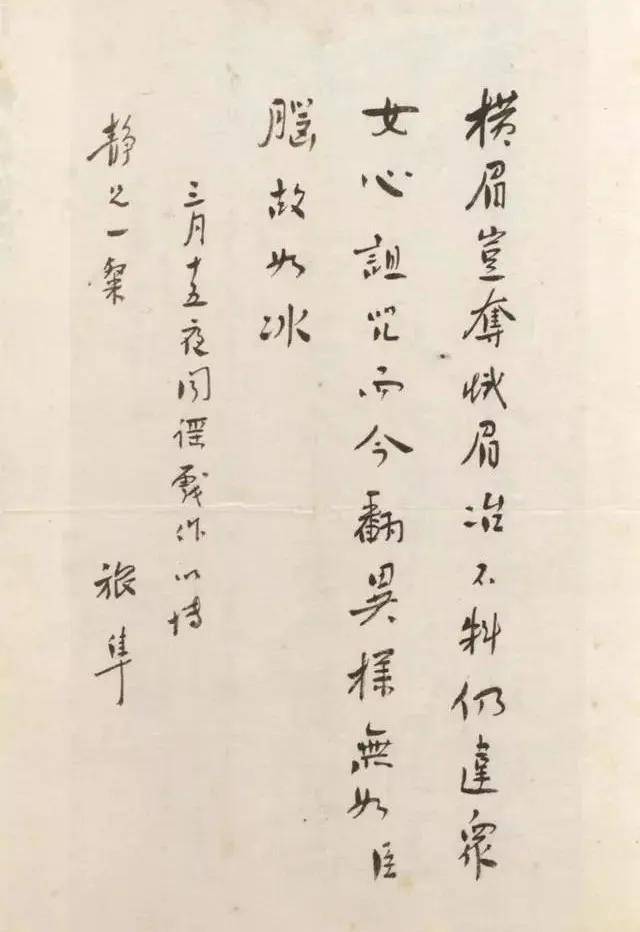 橫眉豈奪蛾眉冶不料仍違衆
女心詛咒而今翻異樣無如臣
腦故如冰
三月十五夜聞謠戲作以博
靜兄一粲
旅隼